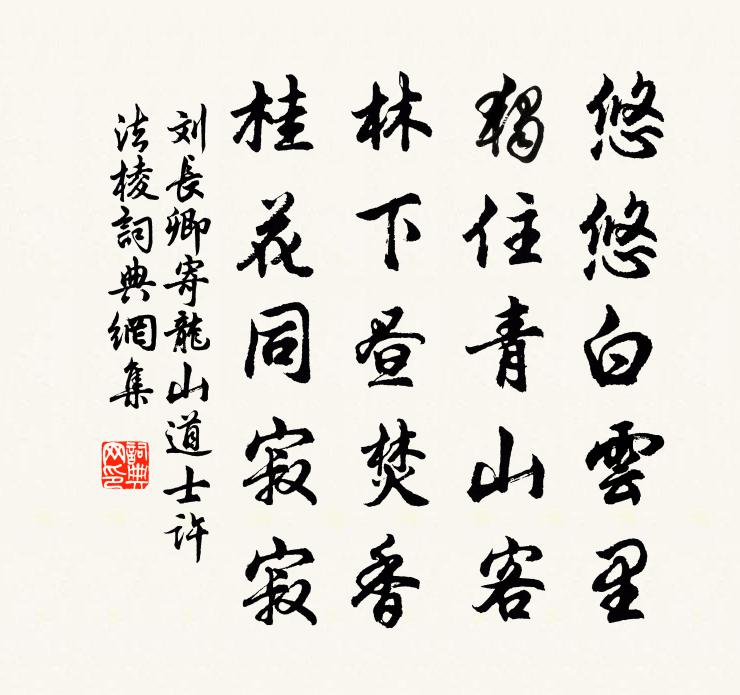 悠悠白雲里
獨住青山客
林下昼焚香
桂花同寂寂
刘長卿寄龍山道士許
法棱詞典網集
詞典
网印